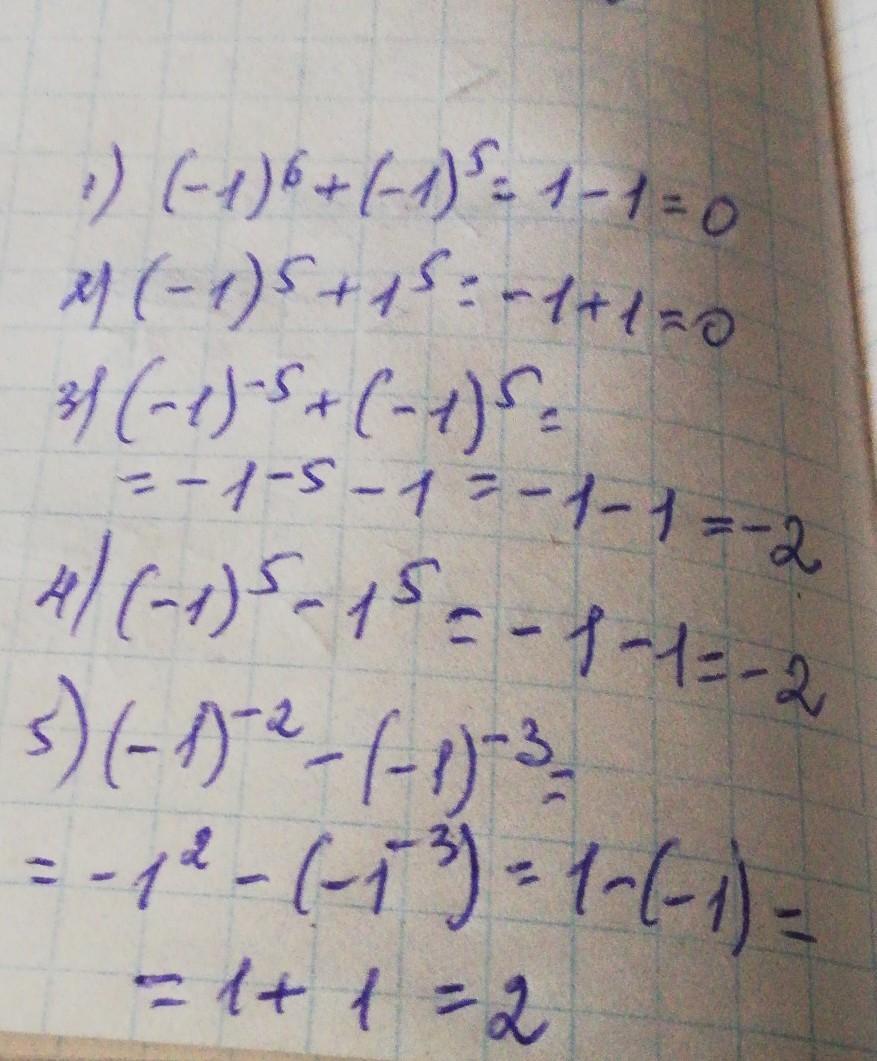 1) (-1)⁶ + (-1)⁵ = 1 - 1 = 0
2) (-1)⁵ + 1⁵ = -1 + 1 = 0
3) (-1)⁻⁵ + (-1)⁵ =
= -1⁻⁵ - 1 = -1 - 1 = -2
4) (-1)⁵ - 1⁵ = -1 - 1 = -2
5) (-1)⁻² - (-1)⁻³ =
= -1² - (-1⁻³) = 1 - (-1) =
= 1 + 1 = 2